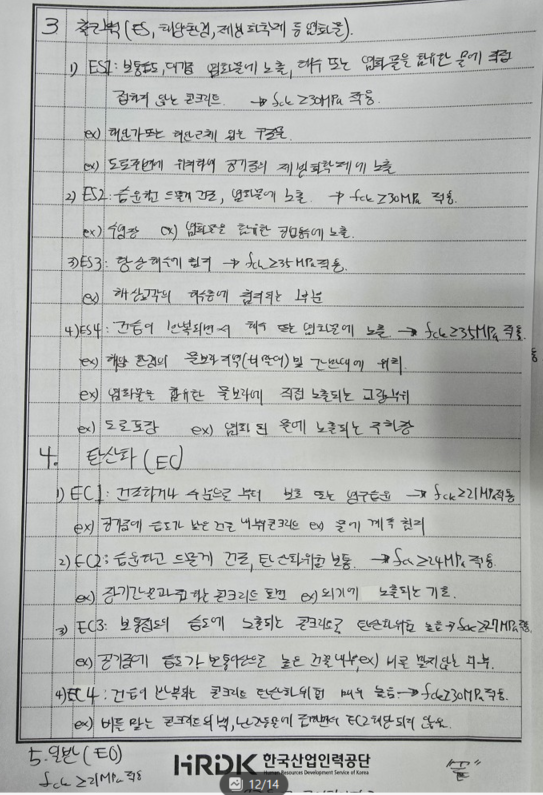 3 (ES, 해양환경, 제설화학제 등 염화물).
1) ES1: 보통정도, 대기중 염화물에 노출, 해수 또는 염화물을 함유한 물에 직접
접하지 않는 콘크리트. → fck ≥30MPa 적용.
ex) 해안가 또는 해안근처 있는 구조물
ex) 도로주변에 위치하여 공기중의 제설화학제에 노출
2) ES2: 습윤하고 드물게 건조, 염화물에 노출. → fck ≥30MPa 적용.
ex) 수영장 ex) 염화물을 함유한 공업용수에 노출.
3) ES3: 항상 해수에 침지 → fck ≥35MPa 적용.
ex) 해상교각의 해수중에 침지되는 부분
4) ES4: 건습이 반복되면서 해수 또는 염화물에 노출 → fck ≥35MPa 적용.
ex) 해양 환경의 물보라 지역(비말대) 및 간만대에 위치.
ex) 염화물을 함유한 물보라에 직접 노출되는 교량부위
ex) 도로포장 ex) 염화 된 물에 노출되는 주차장
4. 탄산화 (EC)
1) EC1: 건조하거나 수분으로 부터 보호 또는 영구습윤 → fck ≥21MPa적용
ex) 공기중에 습도가 낮은 건물 내부콘크리트 ex) 물에 계속 침지
2) EC2: 습윤하고 드물게 건조, 탄산화위험 보통. → fck ≥24MPa 적용.
ex) 장기간 물과 접하는 콘크리트 표면 ex) 외기에 노출되는 기초.
3) EC3: 보통정도의 습도에 노출되는 콘크리트로 탄산화위험 높음 → fck ≥27MPa적용.
ex) 공기중에 습도가 보통이상으로 높은 건물내부, ex) 비를 맞지않는 외부.
4) EC4: 건습이 반복되는 콘크리트 탄산화위험 매우 높음 → fck ≥30MPa 적용.
ex) EC2 해당 되지 않음.
5. 일반 (E0)
fck ≥21MPa 적용
HRDK 한국산업인력공단
Human Resources Development Service of Korea
"끝"
12/14